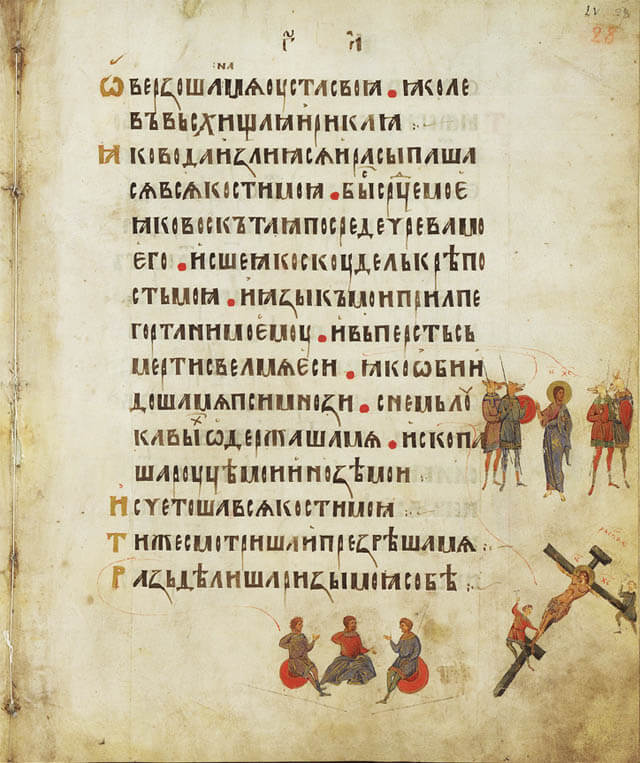 28
ѾВЕРЗОША НА МѦ ОУСТА СВОꙖ • ꙖКО ЛЕ
ВЪ ВЪСХИЩАꙖ И РИКАꙖ
ꙖКО ВОДА ИЗЛИꙖ СѦ И РАСЫПАША
СѦ ВСѦ КОСТИ МОꙖ • БЫС СРДЦЕ МОЕ
ꙖКО ВОСКЪ ТАꙖ ПОСРЕДЕ ЧРЕВА МО
ЕГО • ИСШЕ ꙖКО СКОУДЕЛЬ КРѢПО
СТЬ МОꙖ • И ꙖЗЫКЪ МОИ ПРИЛПЕ
ГОРТАНИ МОЕМОУ • И ВЪ ПЕРСТЬ СЬ
МЕРТИ СВЕЛ МѦ ЕСИ • ꙖКО ѠБИИ
ДОША МѦ ПСИ МНОЗИ • СНЕМЬ ЛОУ
КАВЫХ ѠДЕРЖАША МѦ • ИСКОПА
ША РОУЦѢ МОИ И НОЗѢ МОИ
ИСЧЕТОША ВСѦ КОСТИ МОꙖ
ТИ ЖЕ СМОТРИША И ПРЕЗРѢША МѦ
РАЗЬДѢЛИША РИЗЫ МОꙖ СОБѢ
ІС ХС
РАСПѦ
ІС ХС